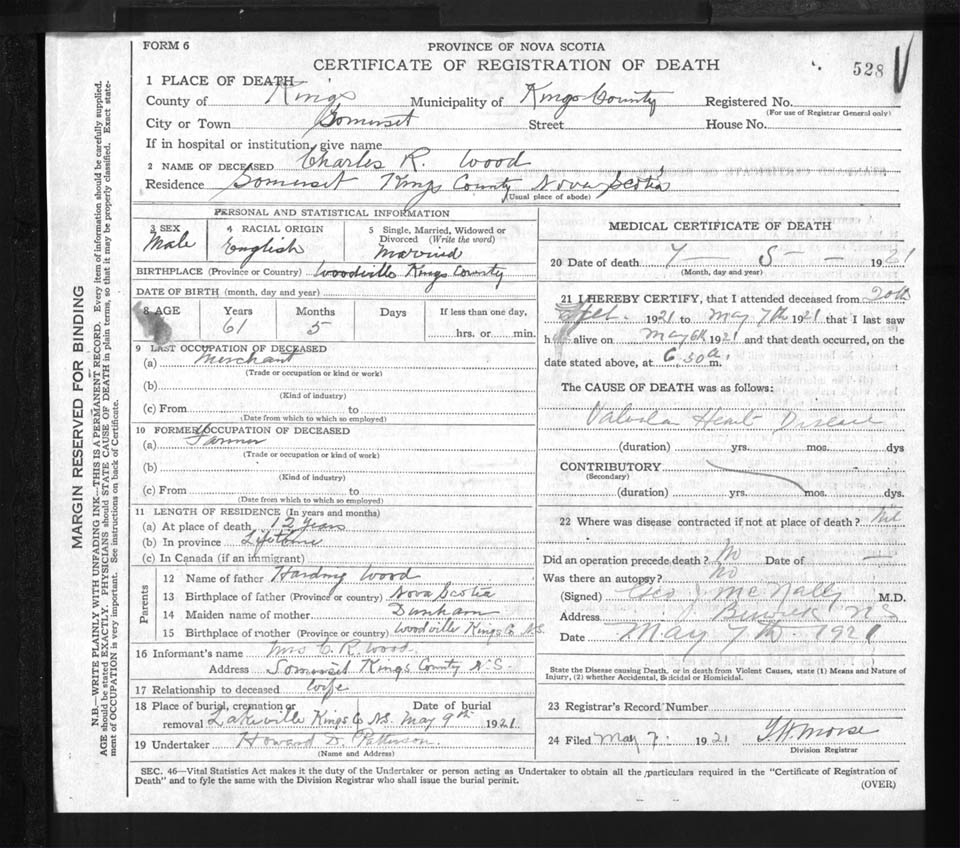 FORM 6
PROVINCE OF NOVA SCOTIA
CERTIFICATE OF REGISTRATION OF DEATH
528
1 PLACE OF DEATH
County of Kings Municipality of Kings County Registered No.
(For use of Registrar General only)
City or Town Somerset Street House No.
If in hospital or institution, give name
2 NAME OF DECEASED Charles R. Wood
Residence Somerset Kings County Nova Scotia
(Usual place of abode)
PERSONAL AND STATISTICAL INFORMATION
3 SEX Male
4 RACIAL ORIGIN English
5 Single, Married, Widowed or Divorced (Write the word) Married
BIRTHPLACE (Province or Country) Woodville Kings County
DATE OF BIRTH (month, day and year)
8 AGE Years 61 Months 5 Days If less than one day, hrs. or min.
9 LAST OCCUPATION OF DECEASED
(a) Merchant
(Trade or occupation or kind or work)
(b)
(Kind of industry)
(c) From to
(Date from which to which so employed)
10 FORMER OCCUPATION OF DECEASED
(a) Farmer
(Trade or occupation or kind of work)
(b)
(Kind of industry)
(c) From to
(Date from which to which so employed)
11 LENGTH OF RESIDENCE (In years and months)
(a) At place of death 12 years
(b) In province Lifetime
(c) In Canada (if an immigrant)
Parents
12 Name of father Harding Wood
13 Birthplace of father (Province or country) Nova Scotia
14 Maiden name of mother Dunham
15 Birthplace of mother (Province or country) Woodville Kings Co N.S.
16 Informant's name Mrs C. R. Wood
Address Somerset Kings County N.S.
17 Relationship to deceased Wife
18 Place of burial, cremation or removal Lakeville Kings Co N.S. Date of burial May 9th 1921
19 Undertaker Howard D. Patterson
(Name and Address)
MEDICAL CERTIFICATE OF DEATH
20 Date of death 7 — 5 — 1921
(Month, day and year)
21 I HEREBY CERTIFY, that I attended deceased from 20th
April 1921 to May 7th 1921 that I last saw
h alive on May 6th 1921 and that death occurred, on the
date stated above, at 6.50 a m.
The CAUSE OF DEATH was as follows:
Valvular Heart Disease
(duration) yrs. mos. dys
CONTRIBUTORY
(Secondary)
(duration) yrs. mos. dys.
22 Where was disease contracted if not at place of death?
Did an operation precede death? No Date of
Was there an autopsy? No
(Signed) Geo J McNally M.D.
Address Berwick N S
Date May 7th 1921
State the Disease causing Death, or in death from Violent Causes, state (1) Means and Nature of Injury, (2) whether Accidental, Suicidal or Homicidal.
23 Registrar's Record Number
24 Filed May 7 1921 Morse
Division Registrar
SEC. 46—Vital Statistics Act makes it the duty of the Undertaker or person acting as Undertaker to obtain all the particulars required in the "Certificate of Registration of
Death" and to fyle the same with the Division Registrar who shall issue the burial permit.
(OVER)
MARGIN RESERVED FOR BINDING
N.B.—WRITE PLAINLY WITH UNFADING INK—THIS IS A PERMANENT RECORD. Every item of information should be carefully supplied.
AGE should be stated EXACTLY. PHYSICIANS should STATE CAUSE OF DEATH in plain terms, so that it may be properly classified. Exact state-
ment of OCCUPATION is very important. See instructions on back of Certificate.